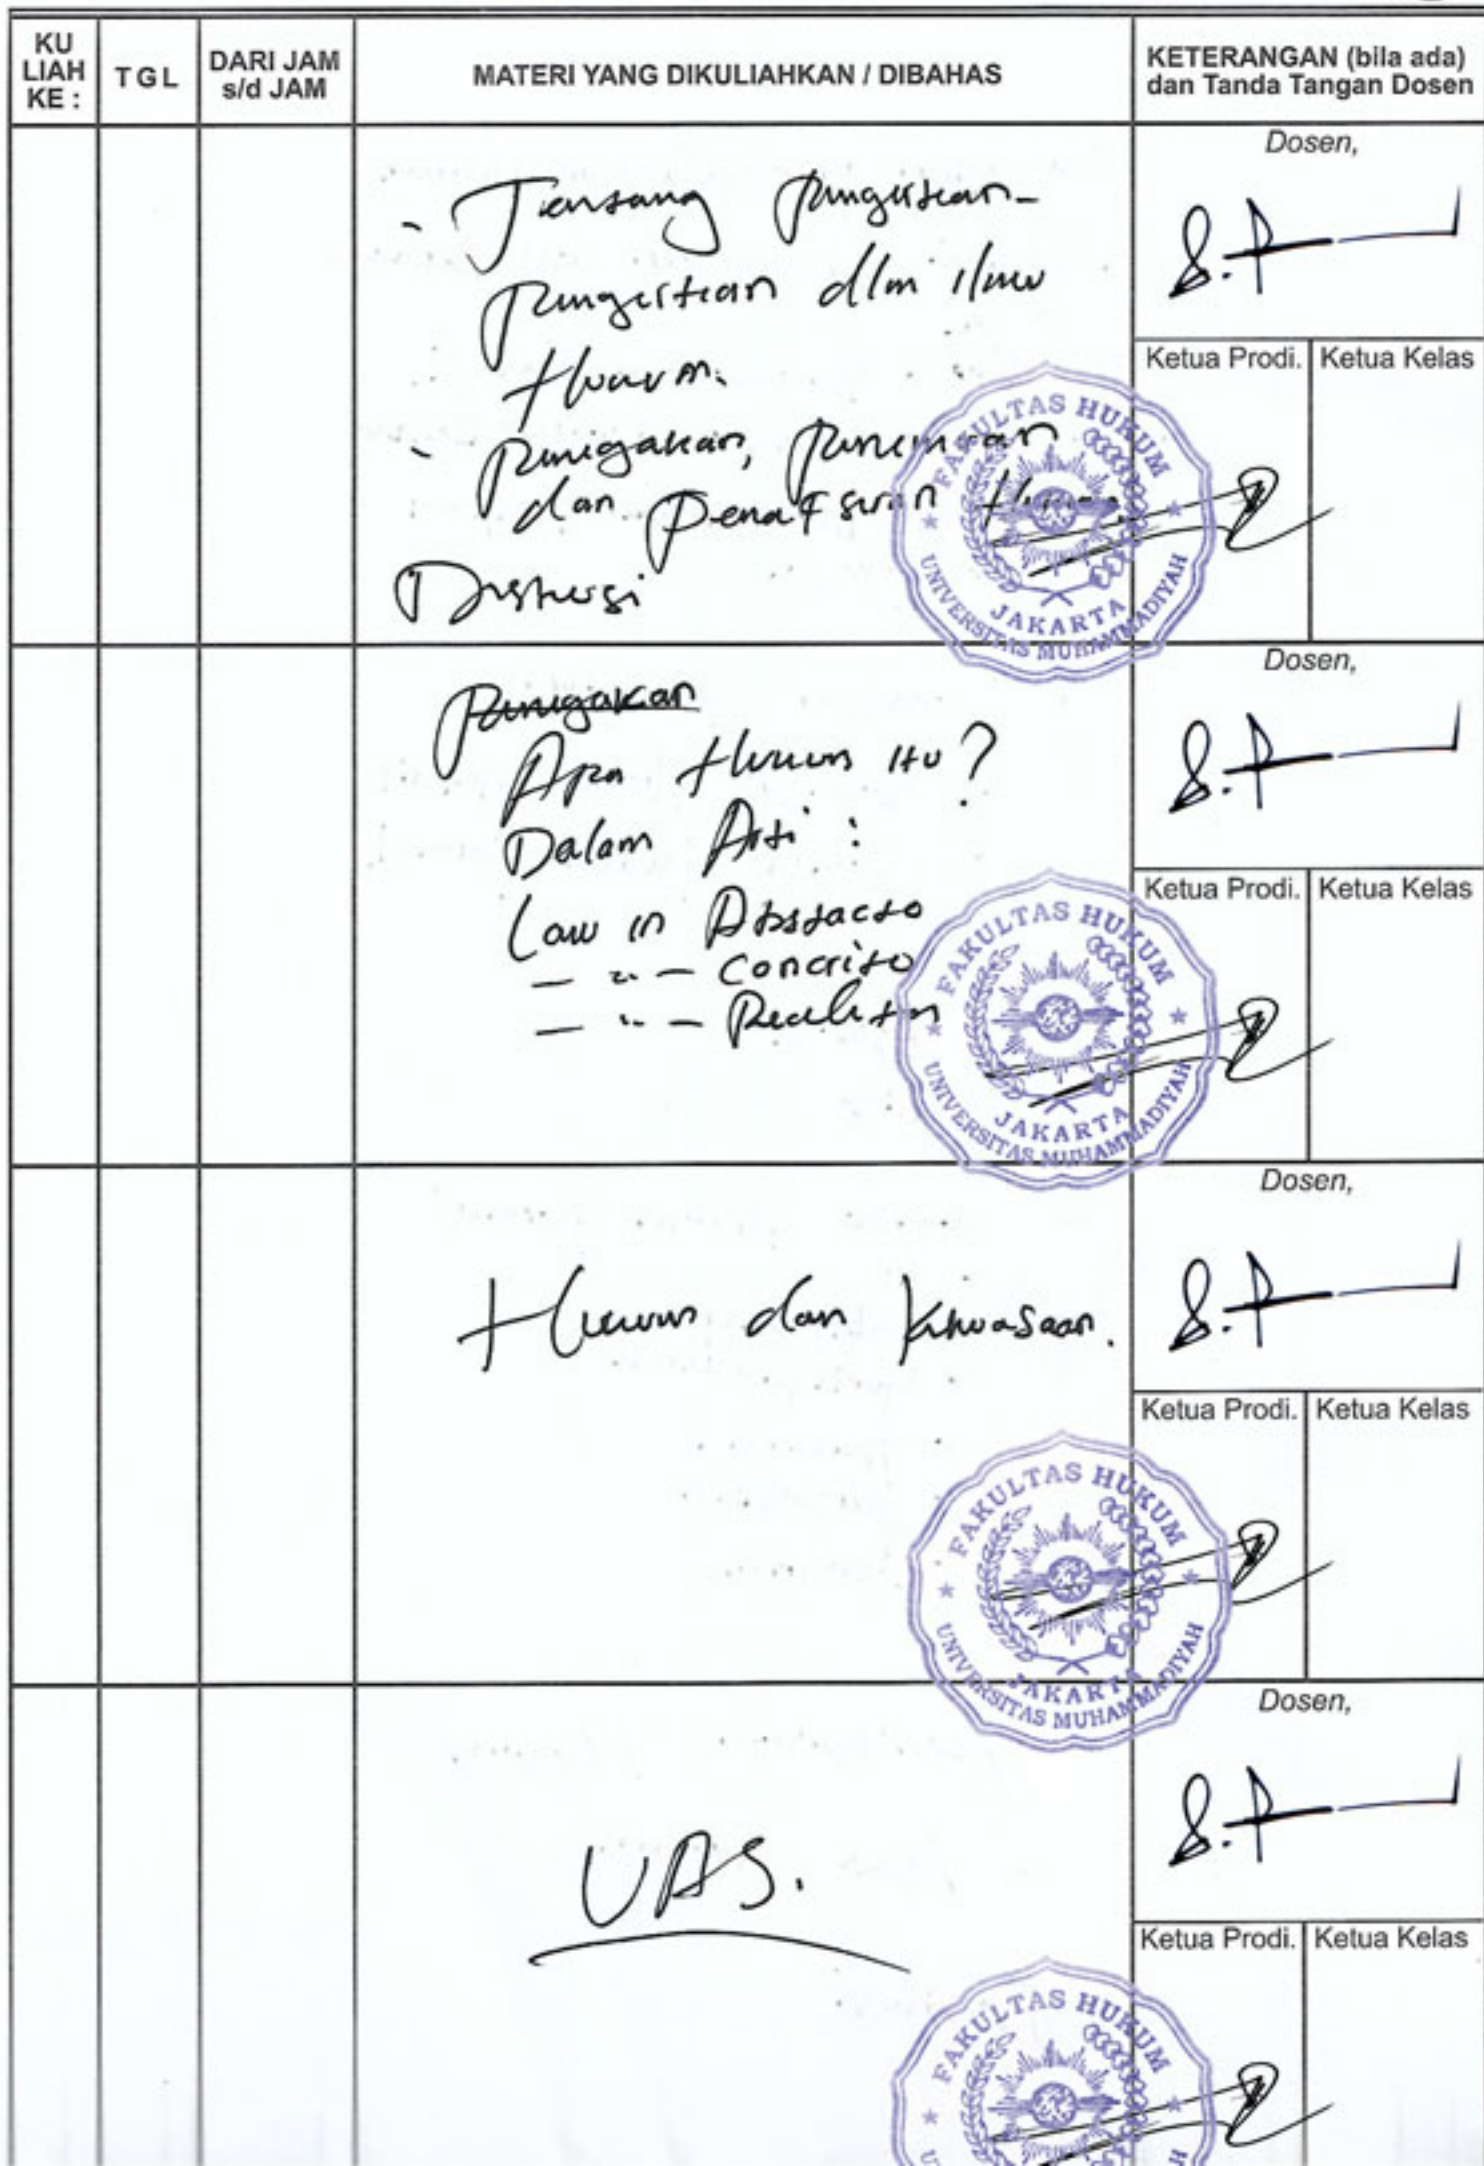 KU LIAH KE :
TGL
DARI JAM s/d JAM
MATERI YANG DIKULIAHKAN / DIBAHAS
KETERANGAN (bila ada) dan Tanda Tangan Dosen
- Tentang pengertian-
pengertian dlm ilmu
Hukum.
- Penegakan, penemuan
dan Penafsiran Hukum
Diskusi
Dosen,
Ketua Prodi.
Ketua Kelas
FAKULTAS HUKUM
UNIVERSITAS MUHAMMADIYAH
JAKARTA
Penegakan
Apa Hukum itu?
Dalam Arti :
Law in Abstracto
— " — Concrito
— " — Realitas
Dosen,
Ketua Prodi.
Ketua Kelas
FAKULTAS HUKUM
UNIVERSITAS MUHAMMADIYAH
JAKARTA
Hukum dan Kekuasaan.
Dosen,
Ketua Prodi.
Ketua Kelas
FAKULTAS HUKUM
UNIVERSITAS MUHAMMADIYAH
JAKARTA
UAS.
Dosen,
Ketua Prodi.
Ketua Kelas
FAKULTAS HUKUM